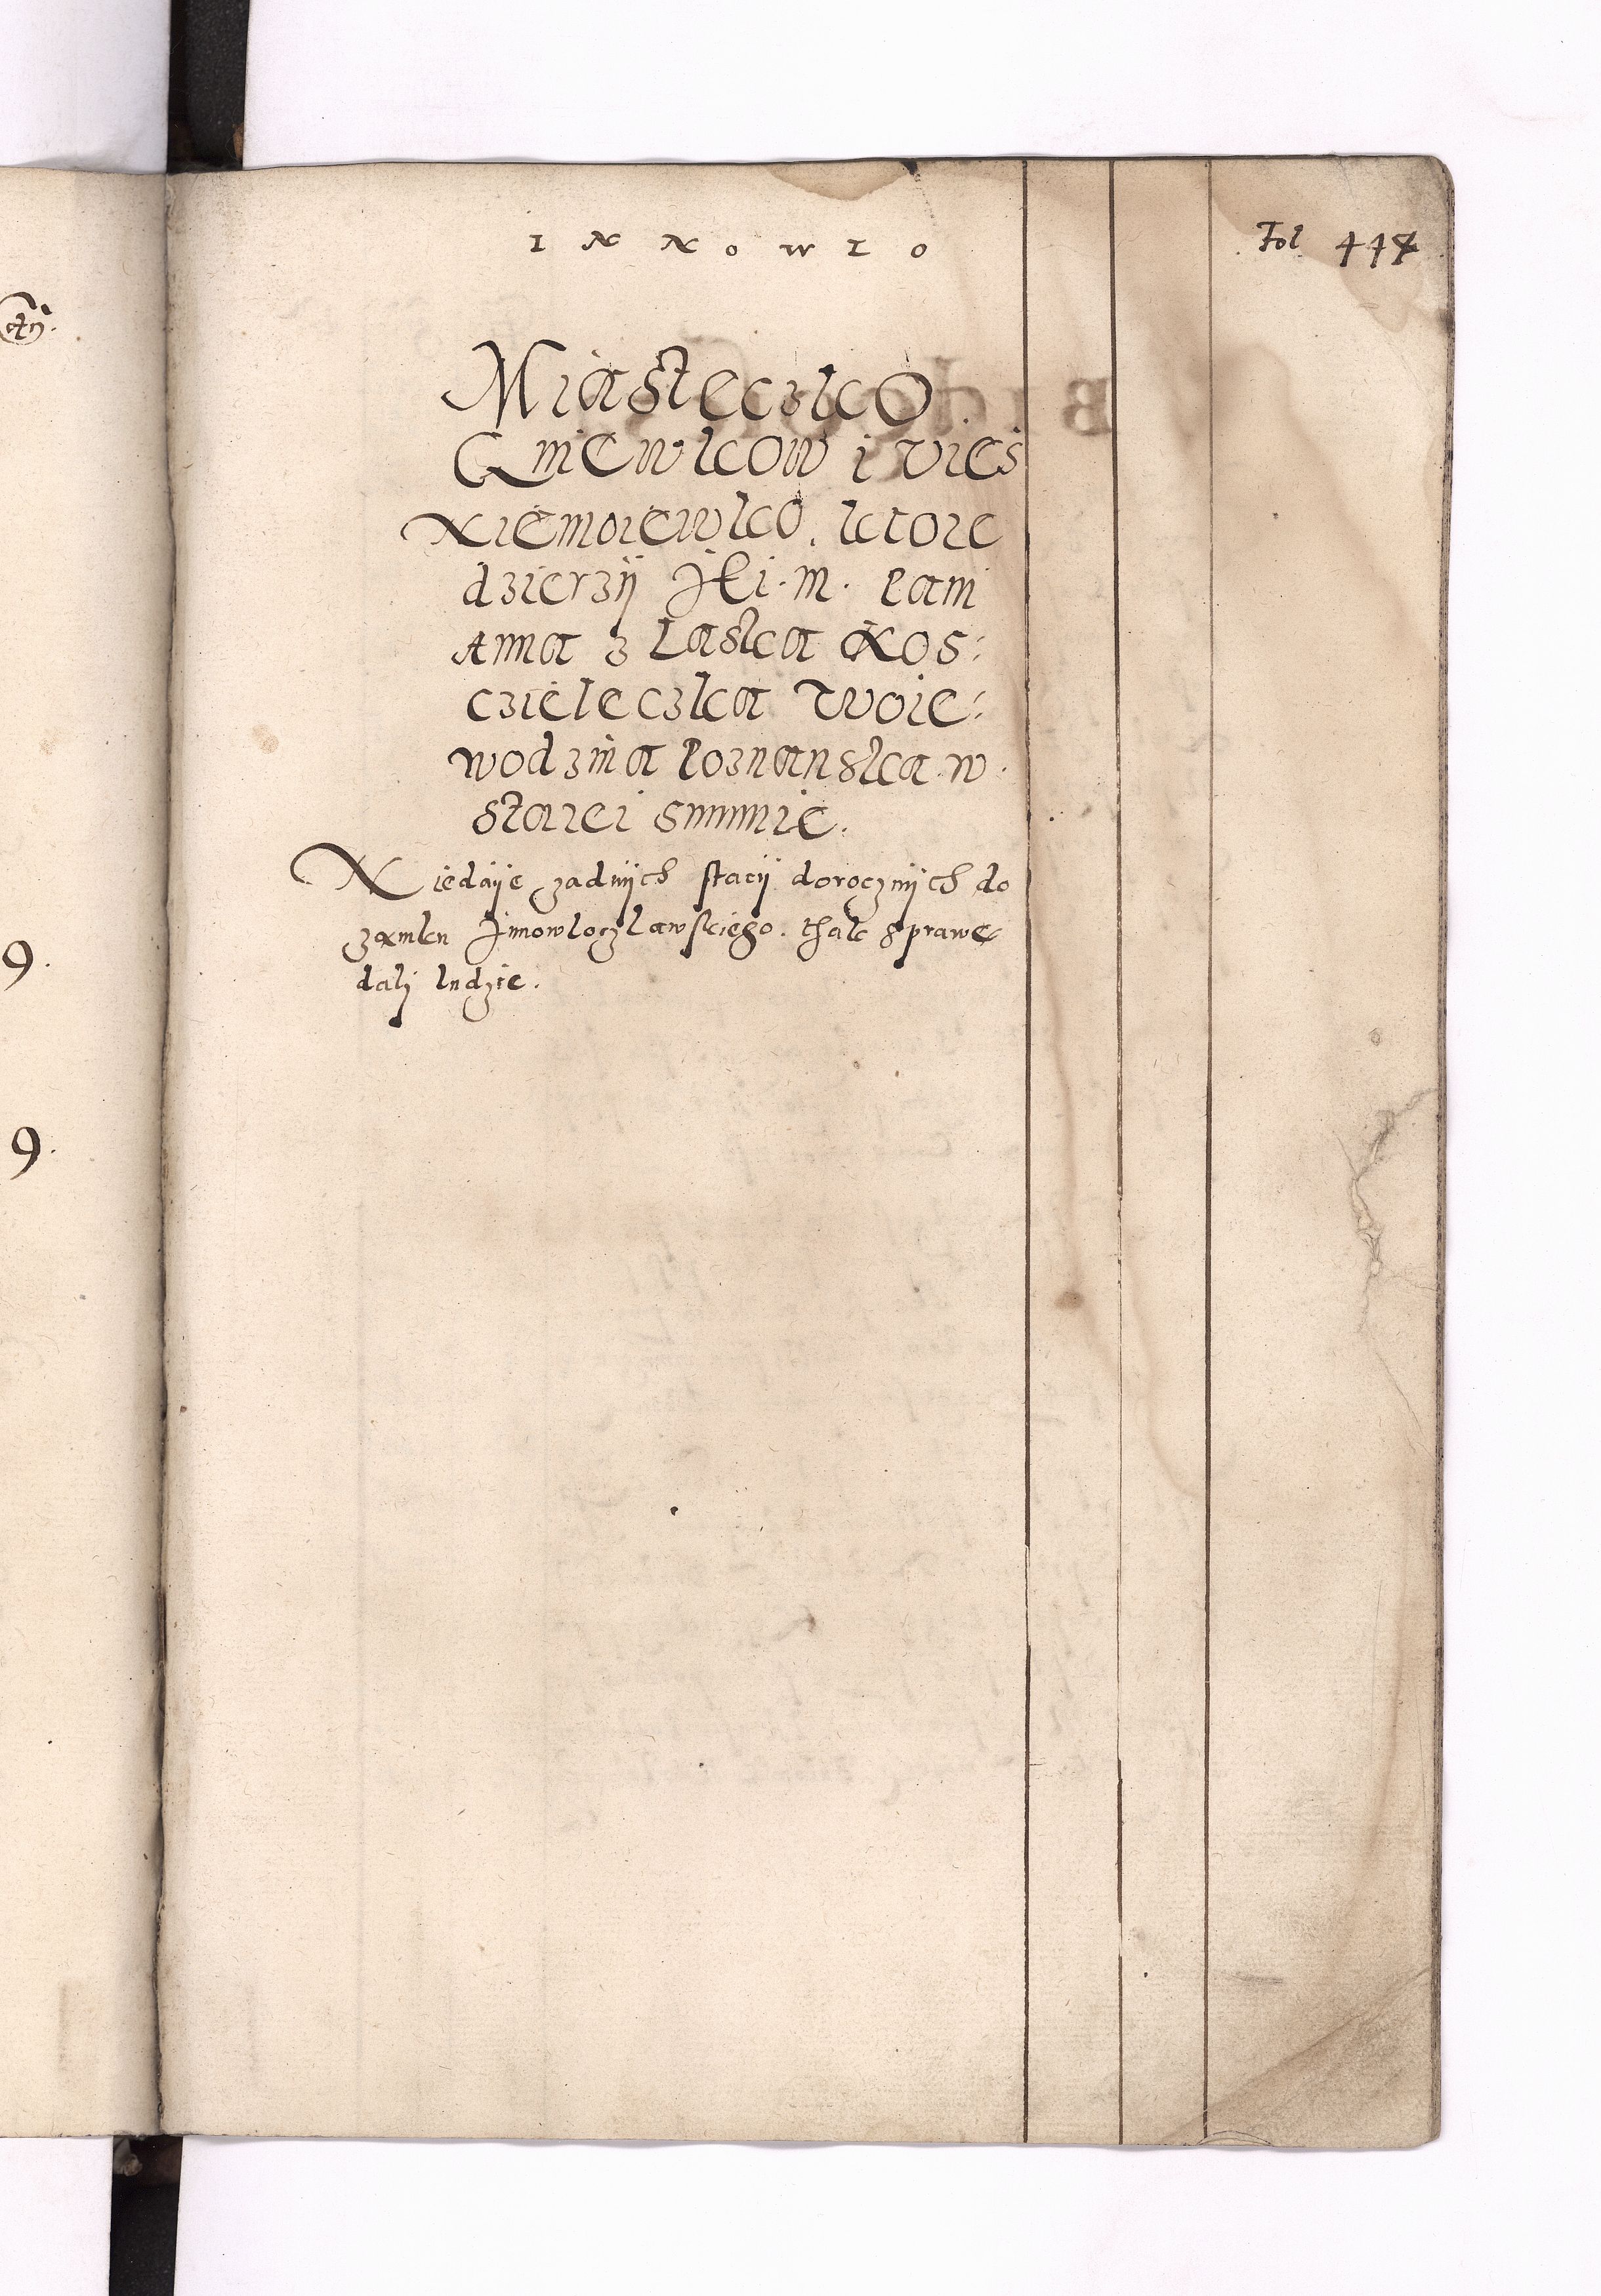 INNOWLO
Fol. 447
Miasteczko
Gniewkow i vieś
Niemoiewko. ktore
dzierzÿ Jei. m. Pani
Anna z Laska Kos:
czieleczka Woie:
wodzina Poznanska w
starei summie.
Niedaÿe zadnÿch stacÿ dorocznÿch do
zamku Jnnowloczlawskiego. thak sprawe⸗
dalj ludzie.
9.
9.